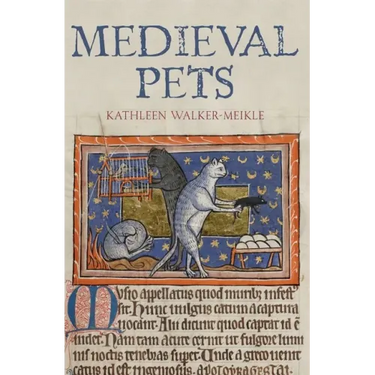 MEDIEVAL
PETS
KATHLEEN WALKER-MEIKLE
Musio appellatus quod muribꝫ infest
sit. Hunc uulgus catum a captura
uocant. Alii dicunt quod captat id ē
uidet. Nam tam acute cernit ut fulgore lumi
nis noctis tenebras superet. Unde a greco uenit
catus id est ingeniosus.